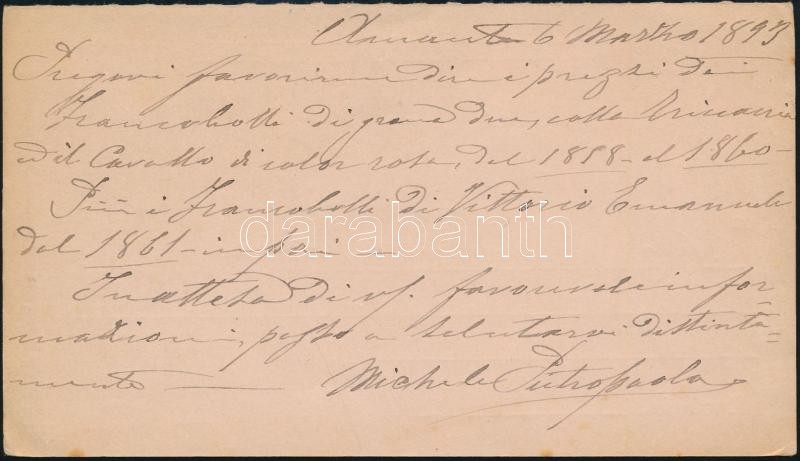 Amante 6 Marzo 1893
Pregovi favorirmi dire i prezzi dei
Francobolli di grana due, colla Trinacria
ed il Cavallo di color rosa, del 1858 - al 1860 -
Più i Francobolli di Vittorio Emanuele
dal 1861 - in poi
In attesa di vs. favorevole infor-
mazioni, passo a salutarvi distinta=
mente — Michele Pietropaolo
darabanth